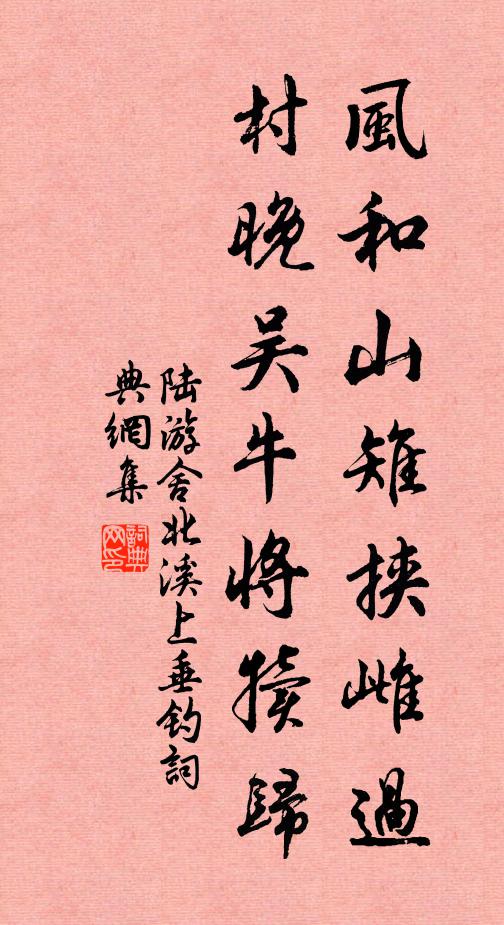 風和山雉挾雌過
村晚吴牛将犢歸
陆游舍北溪上垂钓詞
典網集
詞典網印